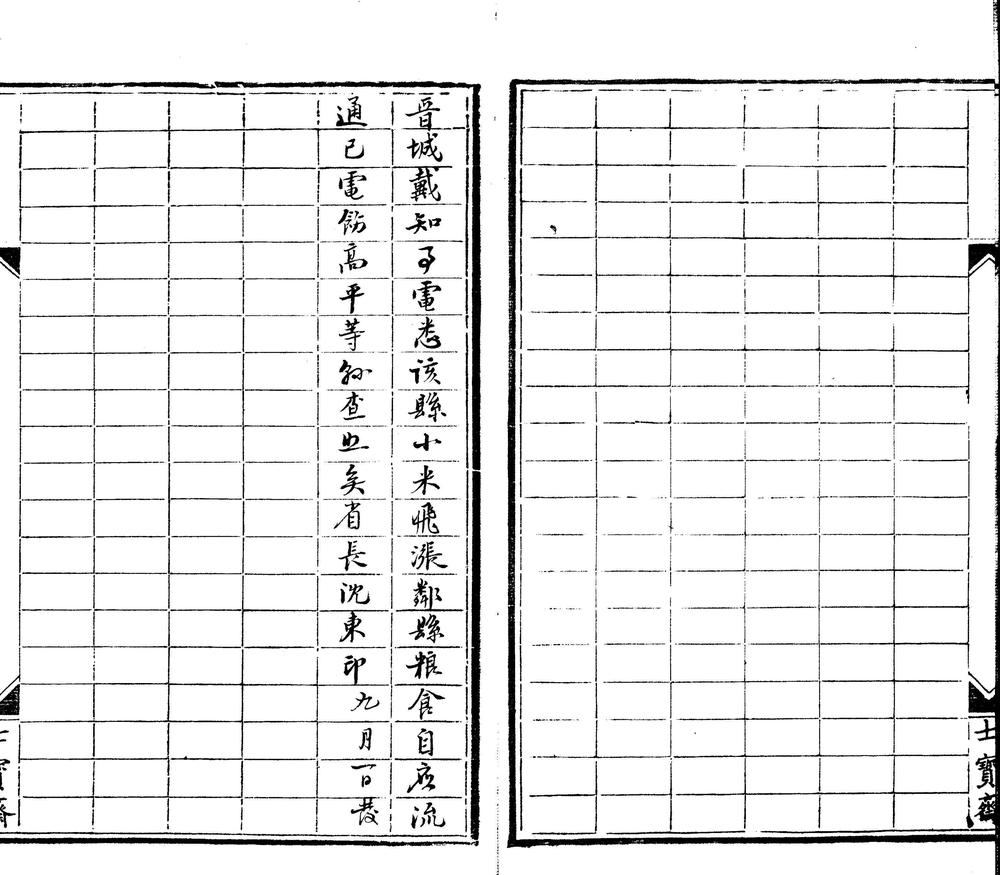 士寶齋
晉城戴知事電悉該縣小米飛漲鄰縣粮食自應流
通已電飭高平等縣查照矣省長沈東印九月一日發
士寶齋